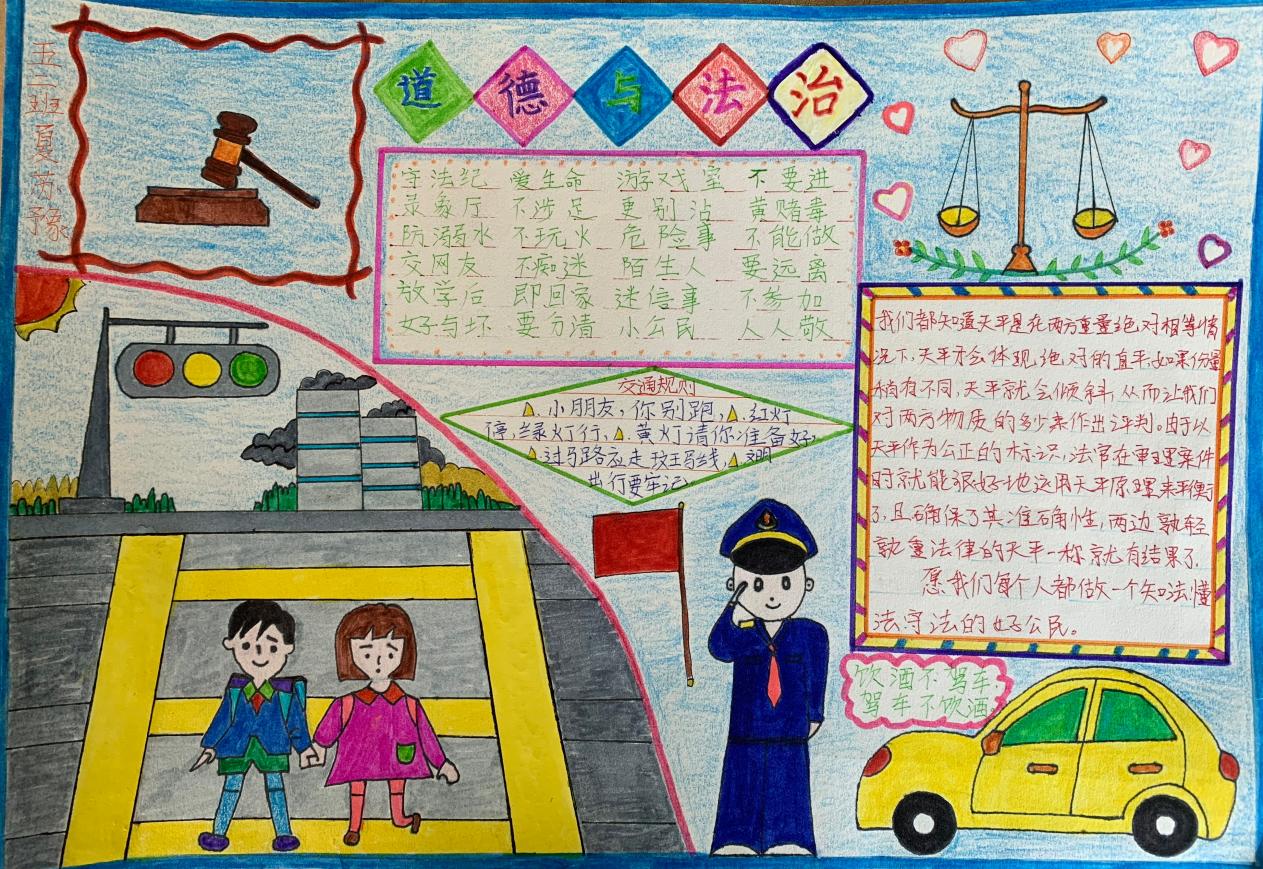 五二班夏苏豫
道德与法治
守法纪 爱生命 游戏室 不要进
录象厅 不涉足 更别沾 黄赌毒
防溺水 不玩火 危险事 不能做
交网友 不痴迷 陌生人 要远离
放学后 即回家 迷信事 不参加
好与坏 要分清 小公民 人人敬
交通规则
小朋友，你别跑，红灯
停，绿灯行，黄灯请你准备好，
过马路应走斑马线，文明
出行要牢记
我们都知道天平是在两方重量绝对相等情
况下，天平才会体现绝对的直平，如果份量
稍有不同，天平就会倾斜，从而让我们
对两方物质的多少来作出评判。由于以
天平作为公正的标识，法官在审理案件
时就能很好地运用天平原理来平衡
了，且确保了其准确性，两边孰轻
孰重法律的天平一称就有结果了.
愿我们每个人都做一个知法懂
法守法的好公民。
饮酒不驾车
驾车不饮酒